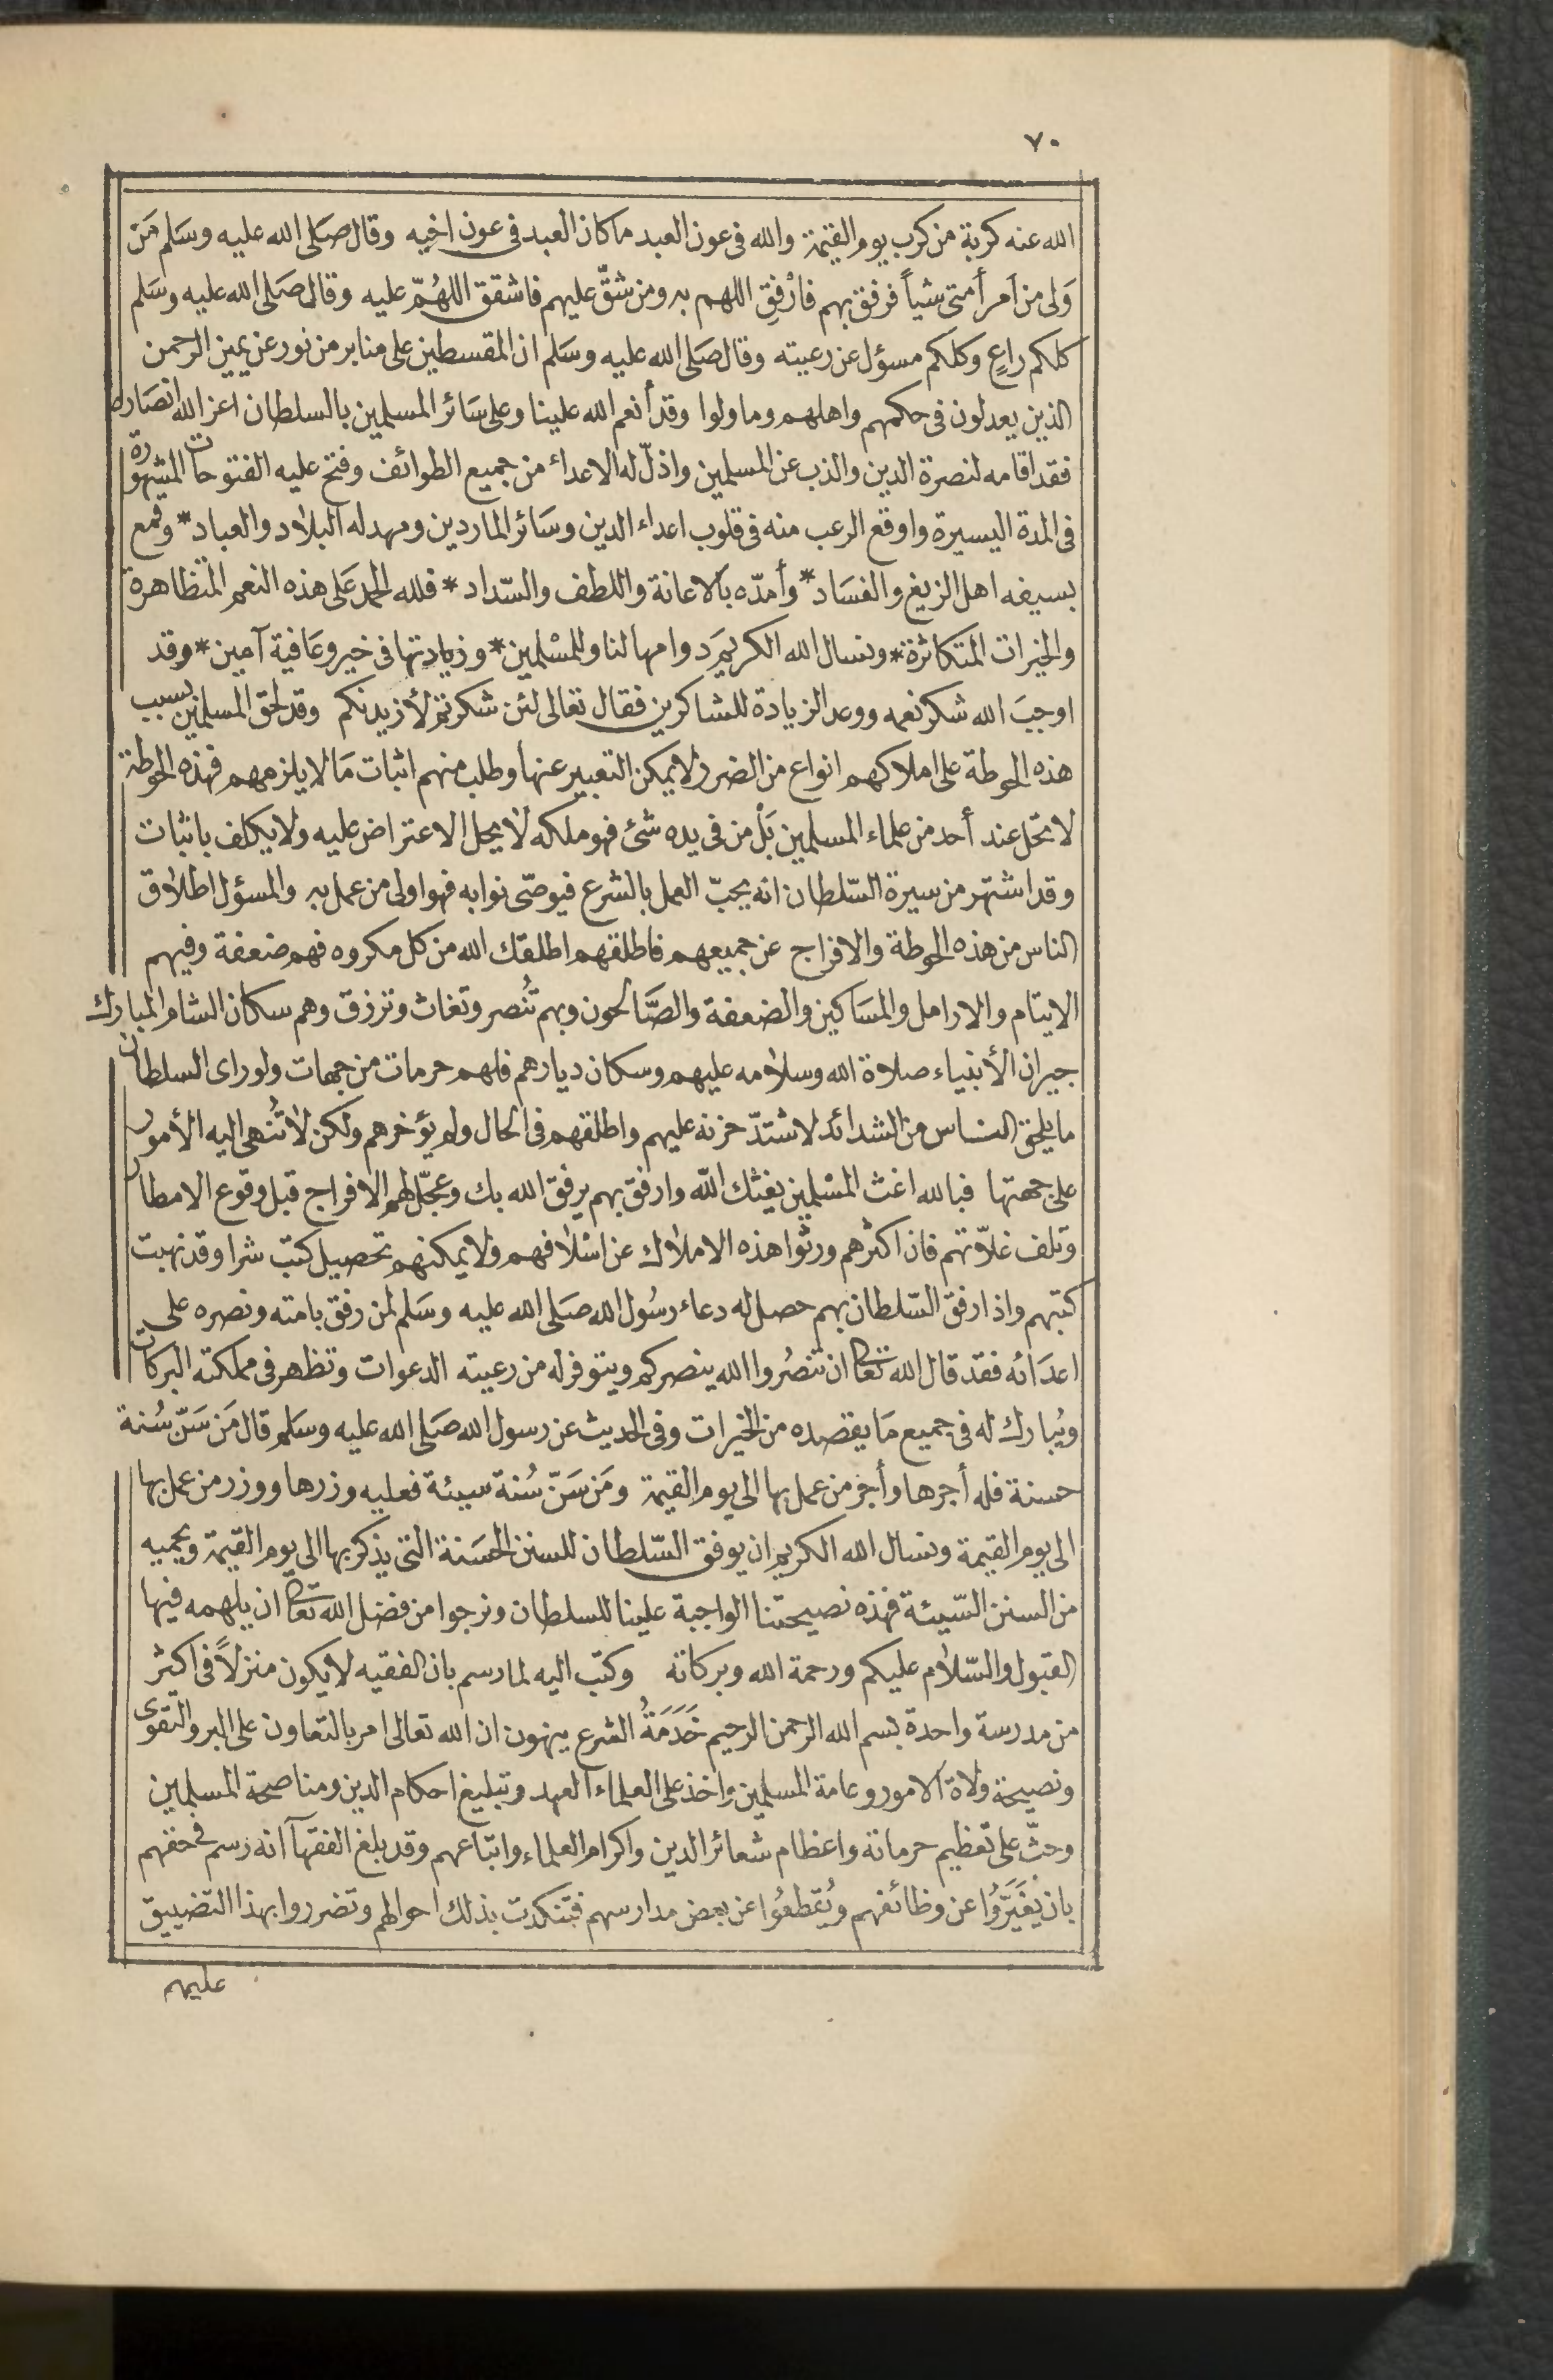 ٧٠
الله عنه كربة من كرب يوم القيٰمة والله فى عون العبد ما كان العبد فى عون اخيه وقال صَلى الله عليه وسَلم مَن
وَلى من أمر أمتى شيأً فرفق بهم فارْفِق اللهم به ومن شقّ عليهم فاشقق اللهُمّ عليه وقال صَلى الله عليه وسَلم
كلكم راعٍ وكلكم مسؤل عن رعيته وقال صَلى الله عليه وسَلم ان المقسطين على منابر من نور عن يمين الرحمن
الذين يعدلون فى حكمهم واهلهم وما ولوا وقد أنعم الله علينا وعلى سَائر المسلمين بالسلطان اعز الله انصَاره
فقد اقامه لنصرة الدين والذب عن المسلمين واذلّ له الاعداء من جميع الطوائف وفتح عليه الفتوحات المشهورة
فى المدة اليسيرة واوقع الرعب منه فى قلوب اعداء الدين وسَائر الماردين ومهد له البلاد والعباد * وقمع
بسيفه اهل الزيغ والفسَاد * وأمدّه بالاعانة واللطف والسّداد * فلله الحمد عَلى هذه النعم المتظاهرة
والخيرات المتكاثرة * ونسال الله الكريمَ دوامها لنا وللمسْلمين * وزيادتها فى خير وعَافية آمين * وقد
اوجبَ الله شكر نعمه ووعد الزيادة للشاكرين فقال تعالى لئن شكرتم لأزيدنكم وقد لحق المسلمين بسبب
هذه الحوطة على املاكهم انواع من الضرر لا يمكن التعبير عنها وطلب منهم اثبات مَا لا يلزمهم فهذه الحوطة
لا تحل عند أحد من علماء المسلمين بَلْ من فى يده شئ فهو ملكه لا يحل الاعتراض عليه ولا يكلف باثبات
وقد اشتهر من سيرة السّلطان انه يحبّ العمل بالشرع فيوصّى نوابه فهو اولى من عمل به والمسؤل اطلاق
الناس من هذه الحوطة والافراج عن جميعهم فاطلقهم اطلقك الله من كل مكروه فهم ضعفة وفيهم
الايتام والارامل والمسَاكين والضعفة والصَّالحون وبهم تُنصر وتغاث وترزق وهم سكان الشام المبارك
جيران الأنبياء صلاة الله وسلامه عليهم وسكان ديارهم فلهم حرمات من جهات ولو راى السلطان
ما يلحق الناس من الشدائد لاشتدّ حزنه عليهم واطلقهم فى الحال ولم يؤخرهم ولكن لا تُنهى اليه الأمور
على جهتها فبالله اغث المسْلمين يغثك الله وارفق بهم يرفق الله بك وعجّل لهم الافراج قبل وقوع الامطار
وتلف غلاّتهم فان اكثرهم ورثوا هذه الاملاك عن اسْلافهم ولا يمكنهم تحصيل كتب شرا وقد نهبت
كتبهم واذا رفق السّلطان بهم حصل له دعاء رسُول الله صَلى الله عليه وسَلم لمن رفق بامته ونصره على
اعدَائه فقد قال الله تعالى ان تنصُروا الله ينصركم ويتوفر له من رعيته الدعوات وتظهر فى مملكته البركات
ويُبارك له فى جميع مَا يقصده من الخيرات وفى الحديث عن رسول الله صَلى الله عليه وسَلم قال مَن سَنّ سُنة
حسنة فله أجرها وأجر من عمل بها الى يوم القيٰمة ومَن سَنّ سُنة سيئة فعليه وزرها ووزر من عمل بها
الى يوم القيٰمة ونسال الله الكريم ان يوفق السّلطان للسنن الحسَنة التى يذكر بها الى يوم القيٰمة ويحميه
من السنن السّيئة فهذه نصيحتنا الواجبة علينا للسلطان ونرجوا من فضل الله تعالى ان يلهمه فيها
القبول والسّلام عليكم ورحمة الله وبركاته وكتب اليه لما رسم بان الفقيه لا يكون منزلاً فى اكثر
من مدرسة واحدة بسم الله الرحمن الرحيم خَدَمَةُ الشرع ينهون ان الله تعالى امر بالتعاون على البر والتقوى
ونصيحة ولاة الامور وعامة المسلمين واخذ على العلماء العهد وتبليغ احكام الدين ومناصحة المسلمين
وحثّ على تعظيم حرماته واعظام شعائر الدين واكرام العلماء واتباعهم وقد بلغ الفقهآ انه رسم فى حقهم
بان يُغيَّرُوا عن وظائفهم ويُقطعُوا عن بعض مدارسهم فتنكدت بذلك احوالهم وتضرروا بهذا التضييق
عليهم